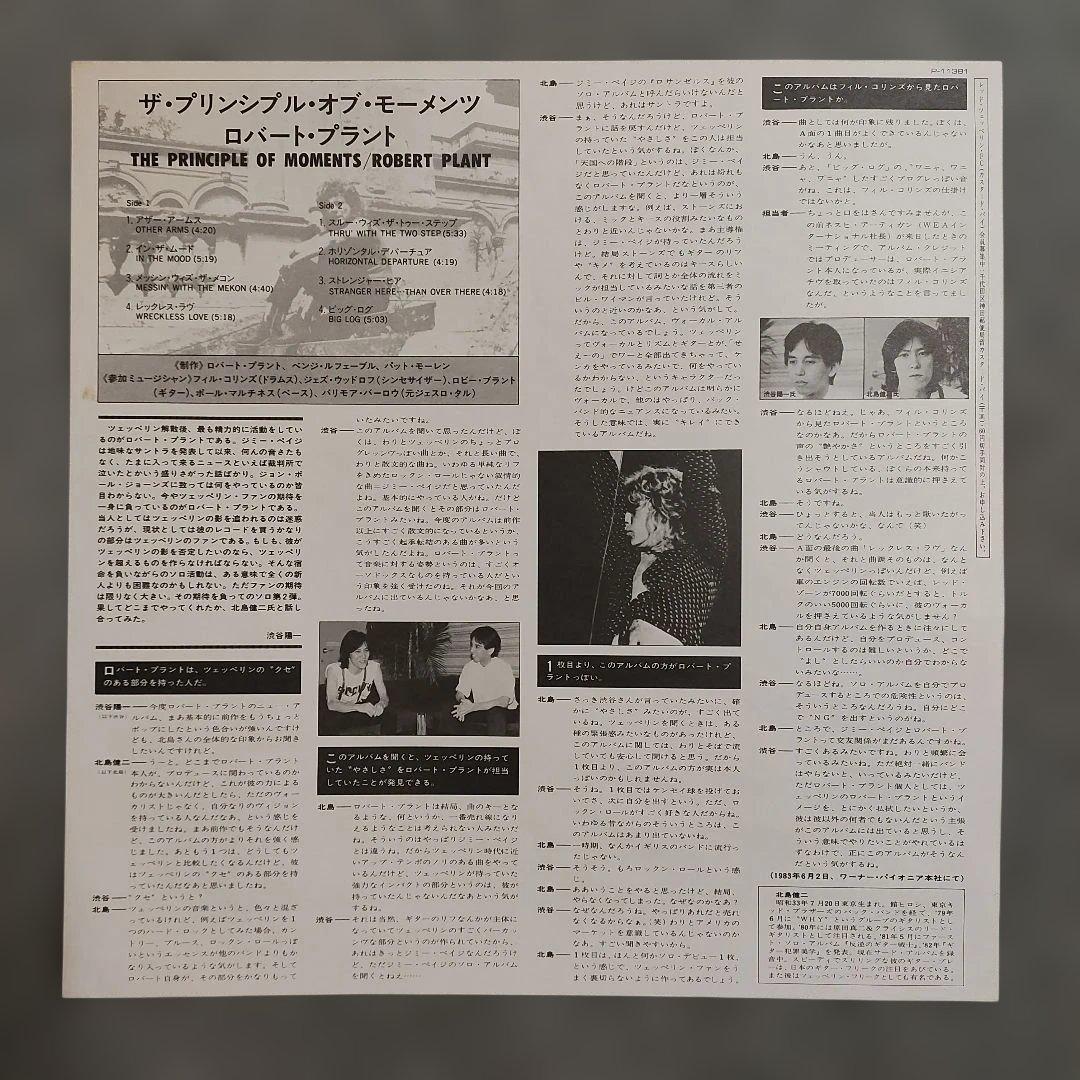 P-11381
ザ・プリンシプル・オブ・モーメンツ
ロバート・プラント
THE PRINCIPLE OF MOMENTS/ROBERT PLANT
Side 1
1. アザー・アームス
OTHER ARMS (4:20)
2. イン・ザ・ムード
IN THE MOOD (5:19)
3. メッシン・ウィズ・ザ・メコン
MESSIN' WITH THE MEKON (4:40)
4. レックレス・ラヴ
WRECKLESS LOVE (5:18)
Side 2
1. スルー・ウィズ・ザ・トゥー・ステップ
THRU' WITH THE TWO STEP (5:33)
2. ホリゾンタル・デパーチュア
HORIZONTAL DEPARTURE (4:19)
3. ストレンジャー・ヒア
STRANGER HERE…THAN OVER THERE (4:18)
4. ビッグ・ログ
BIG LOG (5:03)
《制作》ロバート・プラント、ベンジ・ルフェーブル、パット・モーレン
《参加ミュージシャン》フィル・コリンズ(ドラムス)、ジェズ・ウッドロフ(シンセサイザー)、ロビー・ブラント
(ギター)、ポール・マルチネス(ベース)、バリモア・バーロウ(元ジェスロ・タル)
ツェッペリン解散後、最も精力的に活動をしてい
るのがロバート・プラントである。ジミー・ペイジ
は地味なサントラを発表して以来、何んの音さたも
なく、たまに入って来るニュースといえば裁判所で
泣いたとかいう盛りさがった話ばかり。ジョン・ポ
ール・ジョーンズに致っては何をやっているのか皆
目わからない。今やツェッペリン・ファンの期待を
一身に負っているのがロバート・プラントである。
当人としてはツェッペリンの影を追われるのは迷惑
だろうが、現状としては彼のレコードを買うかなり
の部分はツェッペリンのファンである。もしも、彼が
ツェッペリンの影を否定したいのなら、ツェッペリ
ンを超えるものを作らなければならない。そんな宿
命を負いながらのソロ活動は、ある意味で全くの新
人よりも困難なのかもしれない。ただファンの期待
は限りなく大きい。その期待を負ってのソロ第2弾。
果してどこまでやってくれたか、北島健二氏と話し
合ってみた。
渋谷陽一
ロバート・プラントは、ツェッペリンの"クセ"
のある部分を持った人だ。
渋谷陽一――今度ロバート・プラントのニュー・ア
ルバム、まあ基本的に前作をもうちょっと
ポップにしたという色合いが強いんですけ
ども、北島さんの全体的な印象からお聞き
したいんですけれど。
北島健二――うーと。どこまでロバート・プラント
本人が、プロデュースに関わっているのか
わからないんだけど、これが彼の力による
ものが大きいんだとしたら、ただのヴォー
カリストじゃなく、自分なりのヴィジョン
を持っている人なんだなあ、という感じを
受けましたね。まあ前作でもそうなんだけ
ど、このアルバムの方がよりそれを強く感
じました。あともう1つは、どうしてもツ
ェッペリンと比較したくなるんだけど、彼
はツェッペリンの"クセ"のある部分を持
っていたんだなあと思いましたね。
渋谷――"クセ"というと?
北島――ツェッペリンの音楽というと、色々と混ざ
っているけれど、例えばツェッペリンを1
つのハード・ロックとしてみた場合、カン
トリー、ブルース、ロックン・ロールっぽ
いというエッセンスが他のバンドよりもか
なり入っているような気がします。そして
ロバート自身が、その部分をかなりもって
いたみたいですね。
渋谷――このアルバムを聞いて思ったんだけど、ぼ
くは、わりとツェッペリンのちょっとプロ
グレッシヴっぽい曲とか、それと長い曲で、
わりと散文的な曲ね。いわゆる単純なリフ
をきめたロックン・ロールじゃない叙情的
な曲=ジミー・ペイジだと思っていたんだ
よね。基本的にやっている人かね。だけど
このアルバムを聞くとその部分はロバート
・プラントみたいね。今度のアルバムは前作
以上にすごく散文的になっているというか、
こうすごく起承転結のある曲が多いという
気がしたんだよね。ロバート・プラントっ
て音楽に対する姿勢というのは、すごくオ
ーソドックスなものを持っている人だとい
う印象を強く受けたのね。それが今回のア
ルバムに出ているんじゃないかなあ、と思
ったね。
このアルバムを聞くと、ツェッペリンの持って
いた"やさしさ"をロバート・プラントが担当
していたことが発見できる。
北島――ロバート・プラントは結局、曲のキーとな
るような、何というか、一番売れ線になり
えるようなことは考えられない人みたいだ
ね。そういうのはやっぱりジミー・ペイジ
とは違うね。だからツェッペリン時代に近
いアップ・テンポのノリのある曲をやって
いるんだけど、ツェッペリンが持っていた
強力なインパクトの部分というのは、彼が
持っていたんじゃないんだなあという気が
する。
渋谷――それは当然、ギターのリフなんかが主体に
なっていてツェッペリンのすごくパーカッ
シヴな部分というのが作られていたから、
あれはきっとジミー・ペイジなんだろうけ
ど、ただジミー・ペイジのソロ・アルバム
を聞くとねえ……
北島――ジミー・ペイジの『ロサンゼルス』を彼の
ソロ・アルバムと呼んだらいけないんだと
思うけど、あれはサントラですよ。
渋谷――まぁ、そうなんだろうけど、ロバート・プ
ラントに話を戻すんだけど、ツェッペリン
の持っていた"やさしさ"をこの人は担当
していたという気がするね。ぼくなんか、
「天国への階段」というのは、ジミー・ペイ
ジだと思っていたんだけど、あれは紛れも
なくロバート・プラントだなというのが、
このアルバムを聞くと、より一層そういう
感じがしますな。例えば、ストーンズにお
ける、ミックとキースの役割みたいなもの
とわりと近いんじゃないかな。まあ主導権
は、ジミー・ペイジが持っていたんだろう
けど。結局ストーンズでもギターのリフ
や"キメ"を考えているのはキースらしい
んで、それに対して詞とか全体の流れをミ
ックが担当しているみたいな話を第三者の
ビル・ワイマンが言っていたけれど。そう
いうのと近いのかなあ、という気がして。
だから、このアルバム、ヴォーカル・アル
バムになっているでしょう。ツェッペリン
ってヴォーカルとリズムとギターとが、"
せえーの"でワーと全部出てきちゃって、ケ
ンカをやっているみたいで、何をやってい
るかわからない、というキャラクターだっ
たでしょう。けどこのアルバムは明らかに
ヴォーカルで、他のはやっぱり、バック・
バンド的なニュアンスになっているみたい。
そうした意味では、実に"キレイ"にでき
ているアルバムだね。
1枚目より、このアルバムの方がロバート・プ
ラントっぽい。
北島――さっき渋谷さんが言っていたみたいに、確
かに"やさしさ"みたいのが、すごく出て
いるね。ツェッペリンを聞くときは、ある
種の緊張感みたいなものがあったけれど、
このアルバムに関しては、わりとそばで流
していても安心して聞けると思う。だから
1枚目より、このアルバムの方が実は本人
っぽいのかもしれませんね。
渋谷――そうね。1枚目ではケンセイ球を投げてお
いてさ、次に自分を出すという。ただ、ロ
ックン・ロールがすごく好きな人だからね。
いわゆる昔ながらのそういうところは、こ
のアルバムはあまり出ていないね。
北島――一時期、なんかイギリスのバンドに流行っ
たじゃない。
渋谷――そうそう。もろロックン・ロールという感
じ。
北島――ああいうことをやると思ったけど、結局、
やらなくなってしまった。なぜなのかなあ?
渋谷――なぜなんだろうね。やっぱりあれだと売れ
なくなるからなぁ。(笑)わりとアメリカの
マーケットを意識しているんじゃないのか
なあ。すごい聞きやすいから。
北島――1枚目は、ほんと何かソロ・デビュー1枚、
という感じで、ツェッペリン・ファンをう
まく裏切らないように作ってあるでしょう。
このアルバムはフィル・コリンズから見たロバ
ート・プラントか。
渋谷――曲としては何が印象に残りました。ぼくは、
A面の1曲目がよくできているんじゃない
かなあと思いましたが。
北島――うん、うん。
渋谷――あと、「ビッグ・ログ」の、"ワニャ、ワニ
ャ、ワニャ"したすごくプログレっぽい音
がね。これは、フィル・コリンズの仕掛け
ではないかと。
担当者――ちょっと口をはさんですみませんが、こ
の前ネスヒ・アーティガン(WEAイン
ターナショナル社長)が来日したときの
ミーティングで、アルバム・クレジット
ではプロデューサーは、ロバート・プラ
ント本人になっているが、実際イニシア
チヴを取っていたのはフィル・コリンズ
なんだ、というようなことを言ってまし
たが。
渋谷陽一氏
北島健二氏
渋谷――なるほどねえ。じゃあ、フィル・コリンズ
から見たロバート・プラントというところ
なのかなあ。だからロバート・プラントの
声の"艶やかさ"というところをすごく引
き出そうとしているアルバムだね。何かこ
うシャウトしている、ぼくらの本来持って
るロバート・プラントは意識的に押さえて
いる気がするね。
北島――そうですね。
渋谷――ひょっとすると、当人はもっと歌いたがっ
てんじゃないかな、なんて(笑)
北島――どうなんだろう。
渋谷――A面の最後の曲「レックレス・ラヴ」なん
か聞くと、それと曲調そのものは、なんと
なくツェッペリンっぽいんだけど、例えば
車のエンジンの回転数でいえば、レッド・
ゾーンが7000回転ぐらいだとすると、トル
クのいい5000回転ぐらいに、彼のヴォーカ
ルを押さえているような気がしません?
北島――自分自身アルバムを作るときに往々にして
あるんだけど、自分をプロデュース、コン
トロールするのは難しいというか、どこで
"よし"としたらいいのか自分でわからな
いみたいな……。
渋谷――なるほどね。ソロ・アルバムを自分でプロ
デュースするところでの危険性というのは、
そういうところなんだろうね。自分にどこ
で"NG"を出すというのがね。
北島――ところで、ジミー・ペイジとロバート・プラ
ントって交友関係がまだあるんですかね。
渋谷――すごくあるみたいですね。わりと頻繁に会
っているみたいね。ただ絶対一緒にバンド
はやらないと、いっているみたいだけど。
ただロバート・プラント個人としては、ツ
ェッペリンのロバート・プラントというイ
メージを、とにかく払拭したいというか、
彼は彼以外の何者でもないんだという主張
がこのアルバムには出ていると思うし、そ
ういう意味でやりたいことがやれているは
ずなわけで、正にこのアルバムがそうなん
だという気がするね。
(1983年6月2日、ワーナー・パイオニア本社にて)
北島健二
昭和33年7月20日東京生まれ。館ヒロシ、東京キ
ッド・ブラザースのバック・バンドを経て、'79年
6月に"WHY"というグループのギタリストとし
て参加。'80年には原田真二&クライシスのリード・ギ
タリストとして注目される。'81年5月にファー
スト・ソロ・アルバム「反逆のギター戦士」、'82年「ギ
ター犯罪美学」を発表。現在サード・アルバムを録
音中。スピーディでスリリングな彼のギター・プレ
ーは、日本のギター・フリークの注目をあびている。
また後はツェッペリン・フリークとしても有名である。